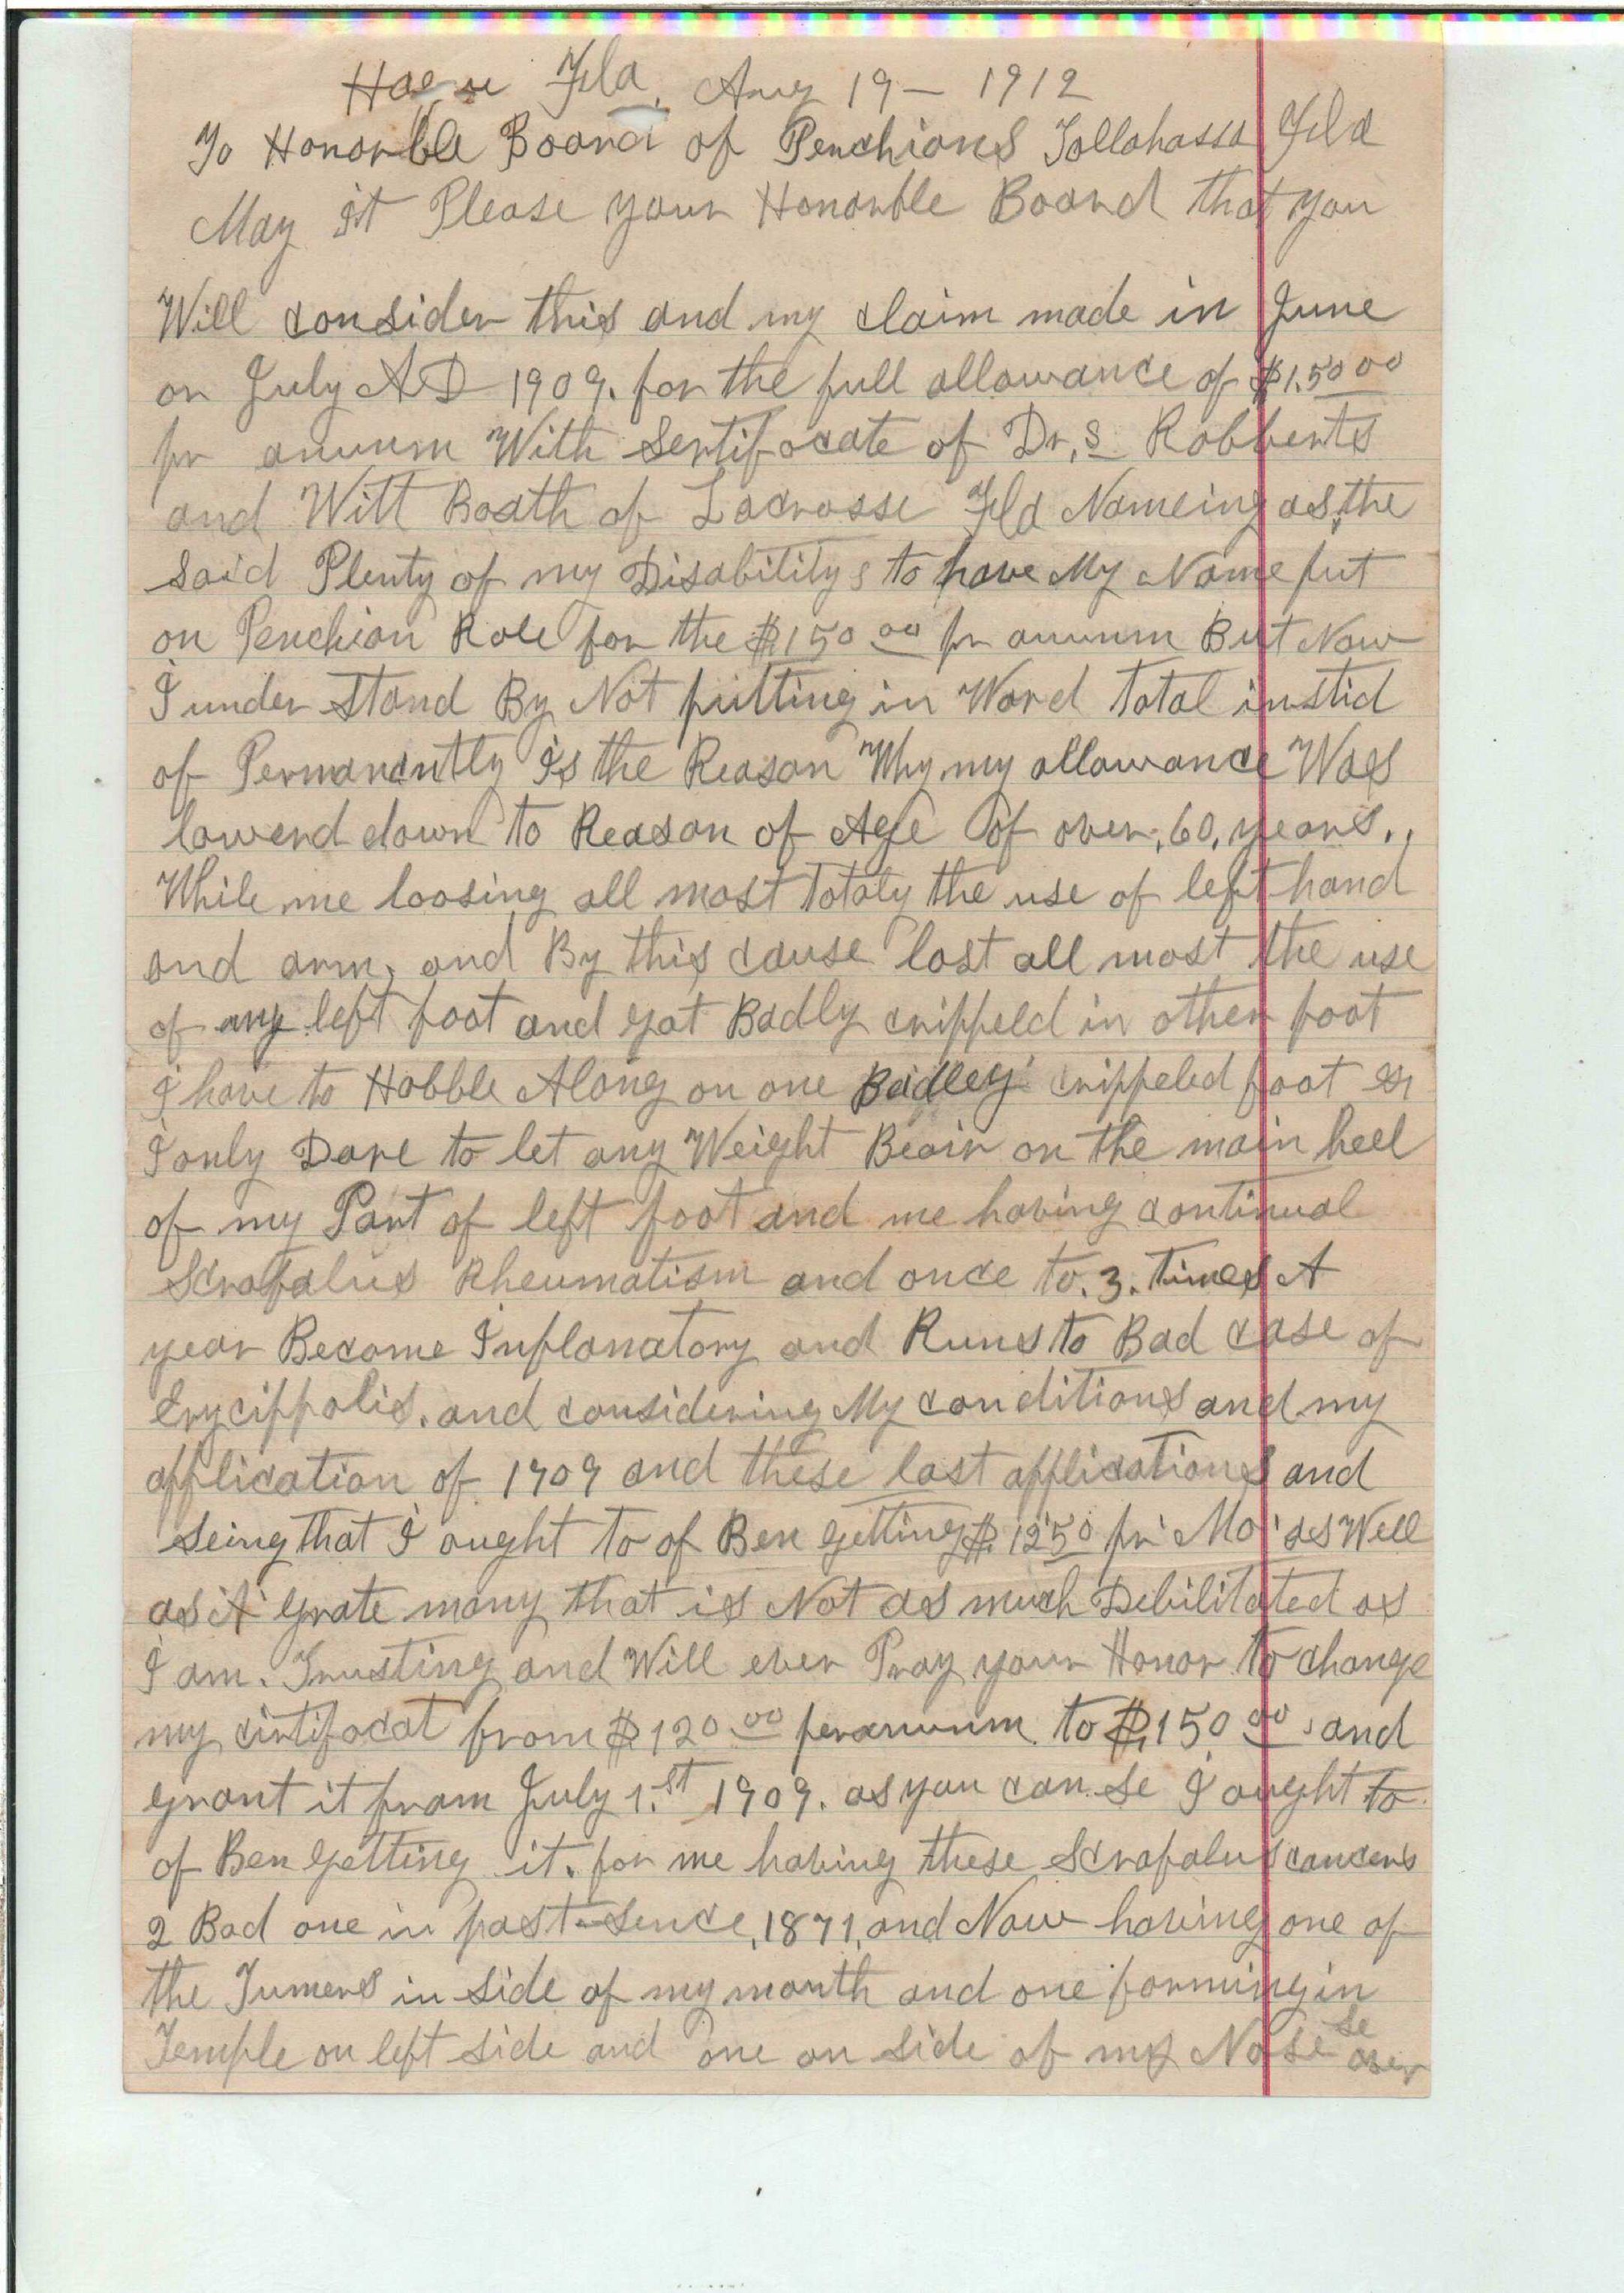 Fla. Aug 19 – 1912
To Honorble Board of Penchions Tollahassa Fla
May it Please your Honorble Board that you
Will consider this and my claim made in June
or July AD 1909. for the full allowance of $1.50 00
pr anuum With Sertifocate of Dr,s Robberts
and Witt Boath of Lacrosse Fla Nameing as, the
said Plenty of my Disabilitys to have My Name put
on Penchion Role for the $150 00 pr anuum But Now
I under stand By Not putting in Word total instid
of Permanantly is the Reason Why my allowance Was
lowerd down to Reason of Age of over, 60, years.,
While me loosing all most totaly the use of left hand
and arm, and By this cause lost all most the use
of my left foot and got Badly crippeld in other foot
I have to Hobble Along on one Badley crippeled foot as
I only Dare to let any Weight Beair on the main heel
of my Part of left foot and me having continual
Scrofalus Rheumatism and once to. 3. times A
year Become Inflamatory and Runs to Bad case of
Erycippolis. and considering My conditions and my
application of 1909 and these last applications and
seing that I ought to of Ben getting $. 12 50 pr Mo as Well
as A grate many that is Not as much Debilitated as
I am. Trusting and Will ever Pray your Honor to change
my cirtifocat from $120.00 peranuum to $,150 00 and
grant it from July 1.st 1909. as you can se I ought to
of Ben getting it. for me having these Scrofalus cancers
2 Bad one in past sence, 1871, and Now having one of
the Tumers in side of my mouth and one forming in
Temple on left side and one on side of my Nose se
over